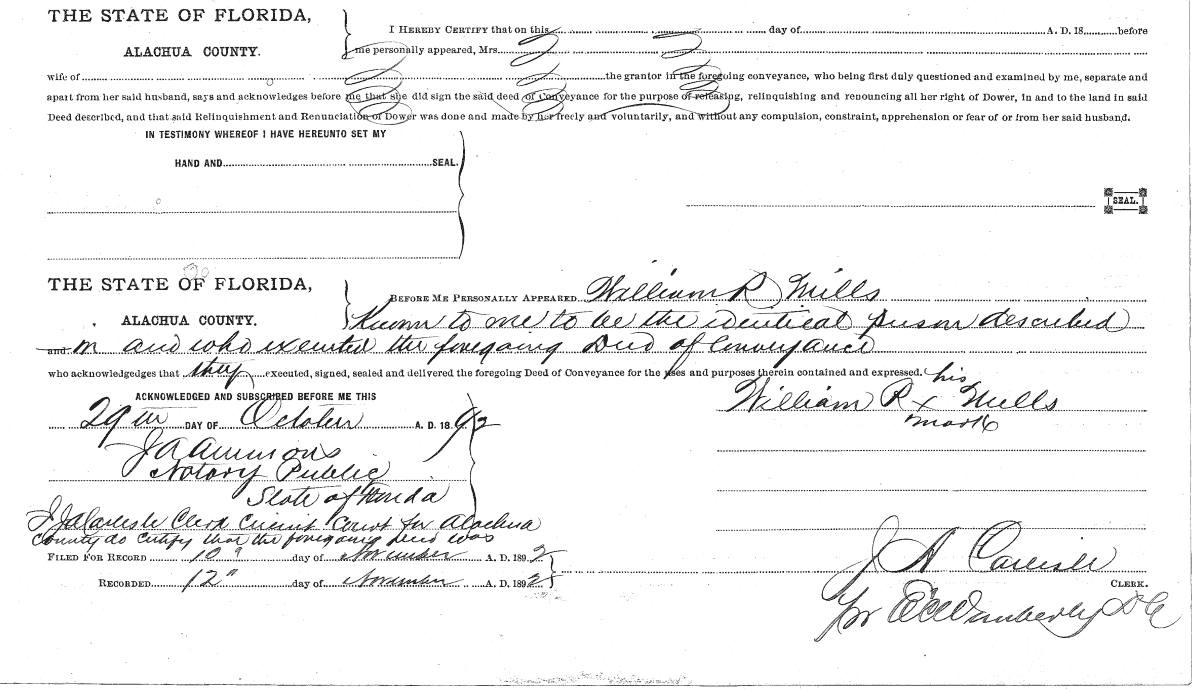 THE STATE OF FLORIDA,
ALACHUA COUNTY.
I HEREBY CERTIFY that on this day of A. D. 18 before
me personally appeared, Mrs.
wife of the grantor in the foregoing conveyance, who being first duly questioned and examined by me, separate and
apart from her said husband, says and acknowledges before me that she did sign the said deed of Conveyance for the purpose of releasing, relinquishing and renouncing all her right of Dower, in and to the land in said
Deed described, and that said Relinquishment and Renunciation of Dower was done and made by her freely and voluntarily, and without any compulsion, constraint, apprehension or fear of or from her said husband.
IN TESTIMONY WHEREOF I HAVE HEREUNTO SET MY
HAND AND SEAL.
SEAL.
THE STATE OF FLORIDA,
ALACHUA COUNTY.
BEFORE ME PERSONALLY APPEARED William R Mills
Known to me to be the identical person described
and in and who executed the foregoing Deed of Conveyance
who acknowledgedges that they executed, signed, sealed and delivered the foregoing Deed of Conveyance for the uses and purposes therein contained and expressed.
his
William R x Mills
mark
ACKNOWLEDGED AND SUBSCRIBED BEFORE ME THIS
29th DAY OF October A. D. 18 92
J A Ammons
Notary Public
State of Florida
I J A Carlisle Clerk Circuit Court for Alachua
County do certify that the foregoing Deed was
FILED FOR RECORD 10" day of November A. D. 1892
RECORDED 12" day of November A. D. 1892
J A Carlisle
CLERK.
pr Wimberly D C